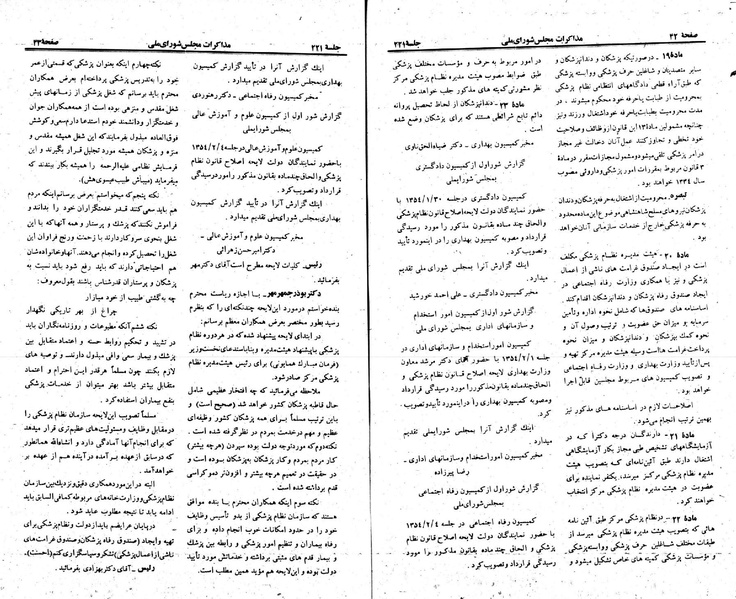 صفحهٔ ۳۲
مذاکرات مجلس شورای ملی
جلسهٔ ۲۲۱
مادهٔ ۱۹ـ درصورتیکه پزشکان و دندانپزشکان و
سایر متصدیان و شاغلین حرف پزشکی ووابسته پزشکی
که طبق آراء قطعی دادگاههای انتظامی نظام پزشکی
بمحرومیت از طبابت یا حرفه خود محکوم میشوند ، در
مدت محرومیت بطبابت یا حرفه خود اشتغال ورزند و نیز
چنانچه مشمولین ماده۱۳ این قانون از وظائف وصلاحیت
خود تخطی و تجاوز کنند عمل آنان دخالت غیر مجاز
در امر پزشکی تلقی میشود و مشمول مجازات مقرر در مادهٔ
۳ قانون مربوط بمقررات امور پزشکی و داروئی مصوب
سال ۱۳۳۴ خواهد بود .
تبصره ـ محرومیت از اشتغال به حرفه پزشکان و دندان
پزشکان نیروهای مسلح شاهنشاهی موضوع این ماده محدود
به حرفه پزشکی خارج از خدمات سازمانی آنان خواهد
بود .
مادهٔ ۲۰ ـ هیئت مدیره نظام پزشکی مکلف
است در ایجاد صندوق غرامت های ناشی از اعمال
پزشکی و نیز با همکاری وزارت رفاه اجتماعی در
ایجاد صندوق رفاه پزشکان و دندانپزشکان اقدام کند .
اساسنامه های صندوقها که شامل نحوه اداره و تأمین
سرمایه و میزان حق عضویت و ترتیب وصول آن و
نحوه کمک به پزشکان و دندانپزشکان و میزان نحوه
پرداخت غرامت هاست وسیله هیئت مدیره مرکز تهیه و
پس از تأیید وزارت بهداری و وزارت رفاه اجتماعی
و تصویب کمیسیون های مربوط مجلسین قابل اجرا
خواهد بود .
اصلاحات لازم در اساسنامه های مذکور نیز
بهمین ترتیب انجام میشود .
مادهٔ ۲۱ ـ دارندگان درجه دکترا که در
آزمایشگاههای تشخیص طبی مجاز بکار آزمایشگاهی
اشتغال دارند طبق آئین نامه ای که بتصویب هیئت
مدیره نظام پزشکی مرکز میرسد، یکنفر نماینده برای
عضویت در هیئت مدیره نظام پزشکی مرکز انتخاب
خواهند کرد.
مادهٔ ۲۲ ـ در نظام پزشکی مرکز طبق آئین نامه
هائی که بتصویب هیئت مدیره نظام پزشکی میرسد از
طبقات مختلف شاغلین حرف پزشکی ووابسته پزشکی
و مؤسسات پزشکی کمیته های خاص تشکیل میشود و
در امور مربوط به حرف و مؤسسات مختلف پزشکی
طبق ضوابط مصوب هیئت مدیره نظام پزشکی مرکز
نظر مشورتی کمیته های مذکور جلب خواهد شد .
مادهٔ ۲۳ ـ دندانپزشکان از لحاظ تحصیل پروانه
دائم تابع شرائطی هستند که برای پزشکان وضع شده
است .
مخبر کمیسیون بهداری ـ دکتر ضیاءالحق نباوی
گزارش شور اول از کمیسیون دادگستری
بمجلس شورایملی
کمیسیون دادگستری در جلسه ۱۳۵۴/۱/۳۰ با
حضور نمایندگان دولت لایحه اصلاح قانون نظام پزشکی
والحاق چند ماده بقانون مذکور را مورد رسیدگی
قرارداد و مصوبه کمیسیون بهداری را در اینمورد تأیید
و تصویب کرد .
اینک گزارش آنرا بمجلس شورای ملی تقدیم
میدارد .
مخبر کمیسیون دادگستری ـ علی احمد خورشید
گزارش شور اول از کمیسیون امور استخدام
و سازمانهای اداری بمجلس شورای ملی
کمیسیون امور استخدام و سازمانهای اداری در
جلسه ۱۳۵۴/۲/۱ با حضور آقای دکتر مرشد معاون
وزارت بهداری لایحه اصلاح قانون نظام پزشکی و
الحاق چند ماده بقانون مذکور را مورد رسیدگی قرارداد
ومصوبه کمیسیون بهداری را در اینمورد تأیید و تصویب
کرد .
اینک گزارش آنرا بمجلس شورایملی تقدیم
میدارد .
مخبر کمیسیون امور استخدام و سازمانهای اداری ـ
رضا پیرزاده
گزارش شور اول از کمیسیون رفاه اجتماعی
بمجلس شورای ملی
کمیسیون رفاه اجتماعی در جلسه ۱۳۵۴/۲/۲
با حضور نمایندگان دولت لایحه اصلاح قانون نظام
پزشکی و الحاق چند ماده بقانون مذکور را مورد
رسیدگی قرارداد و تصویب کرد .
جلسهٔ ۲۲۱
مذاکرات مجلس شورای ملی
صفحهٔ ۳۳
اینک گزارش آنرا در تأیید گزارش کمیسیون
بهداری بمجلس شورای ملی تقدیم میدارد .
مخبر کمیسیون رفاه اجتماعی ـ دکتر رهنوردی
گزارش شور اول از کمیسیون علوم و آموزش عالی
بمجلس شورایملی
کمیسیون علوم و آموزش عالی در جلسه ۱۳۵۴/۲/۴
با حضور نمایندگان دولت لایحه اصلاح قانون نظام
پزشکی والحاق چند ماده بقانون مذکور را مورد رسیدگی
قرارداد و تصویب کرد .
اینک گزارش آنرا در تأیید گزارش کمیسیون
بهداری بمجلس شورای ملی تقدیم میدارد .
مخبر کمیسیون علوم و آموزش عالی ـ
دکتر امیرحسن زهرائی
رئیس ـ کلیات لایحه مطرح است آقای دکتر مهر
بفرمائید .
دکتر بوذرجمهر مهر ـ با اجازه ریاست محترم
بنده خواستم در مورد این لایحه چند نکته ای را که بنظرم
رسید بطور مختصر بعرض همکاران معظم برسانم :
در ابتدای لایحه پیشنهاد شده که در هر دوره نظام
پزشکی با پیشنهاد هیئت مدیره و بنا باستدعای نخست وزیر
(فرمان مبارک همایونی) برای رئیس هیئت مدیره نظام
پزشکی مرکز صادر شود.
ملاحظه میفرمائید که چه افتخار عظیمی شامل
حال قاطبه پزشکان کشور خواهد شد (صحیح است) و
باین ترتیب مسلماً برای همه پزشکان کشور وظیفه ای
عظیم و مهم در خدمت بمردم در نظر گرفته شده است .
نکته دوم که مورد توجه دولت بوده سپردن (هرچه بیشتر)
کار مردم بمردم و کار پزشکان به پزشکان بوده است و
در حقیقت در تعمیم هرچه بیشتر و افزونتر دموکراسی
قدم برداشته شده است .
نکته سوم اینکه همکاران محترم با بنده موافق
هستند که سازمان نظام پزشکی از بدو تأسیس وظایف
خود را در حدود امکانات خوب انجام داده و برای
رفاه بیماران و تنظیم امور پزشکی و رابطه بین پزشک
و بیمار قدم های مثبتی برداشته و خدماتش مورد تأیید
دولت بوده و این لایحه هم مؤید همین مطلب است .
نکته چهارم اینکه بعنوان پزشکی که قسمتی از عمر
خود را به تدریس پزشکی پرداخته ام بعرض همکاران
محترم باید برسانم که شغل پزشکی از زمانهای پیش
شغل مقدس و منزهی بوده است از همه همکاران جوان
و خدمتگزار ودانشمند خودم استدعا دارم سعی و کوشش
فوق العاده مبذول بفرمایند که این شغل همیشه مقدس و
منزه و پزشکان همیشه مورد تجلیل قرار بگیرند و این
فرمایش نظامی علیه الرحمه را همیشه بکار ببندند که
میفرماید (میباش طبیب عیسوی هش) .
نکته پنجم که میخواستم بعرض برسانم اینکه مردم
هم باید سعی کنند قدر خدمتگزاران خود را بدانند و
فراموش نکنند که پزشک و پرستار و همه آنهائیکه با این
شغل بنحوی سروکار دارند با زحمت و رنج فراوان این
شغل را تحصیل کرده و انجام میدهند. آنها و خانواده شان
هم احتیاجاتی دارند که باید رفع شود باید نسبت به
پزشکان و پرستاران قدرشناس باشند بقول معروف :
چه به گشتی طبیب از خود میازار
چراغ از بهر تاریکی نگهدار
نکته ششم آنکه مطبوعات و روزنامه نگاران باید
در تشیید و تحکیم روابط حسنه و اعتماد متقابل بین
پزشک و بیمار سعی وافی مبذول دارند، و توصیه های
لازم بکنند چون مسلماً هرقدر این احترام و اعتماد
متقابل بیشتر باشد بهتر میتوان از خدمات پزشکی
بنفع بیماران استفاده کرد .
مسلماً تصویب این لایحه سازمان نظام پزشکی را
در مقابل وظایف ومسئولیت های عظیم تری قرار میدهد
که برای انجام آنها آمادگی دارد و انشاءالله همانطور
که در سابق از عهده برآمده در آینده هم از عهده بر
خواهدآمد .
البته در این مورد همکاری دقیق ونزدیک بین سازمان
نظام پزشکی ووزارت خانه های مربوطه کمافی السابق باید
ادامه یابد تا نتیجه مطلوب عاید شود .
در پایان عرایضم باید از دولت ونظام پزشکی برای
تهیه و ایجاد (صندوق رفاه پزشکان وصندوق غرامت های
ناشی از اعمال پزشکی) تشکر و سپاسگزاری کنم (احسنت) .
رئیس ـ آقای دکتر بهزادی بفرمائید .